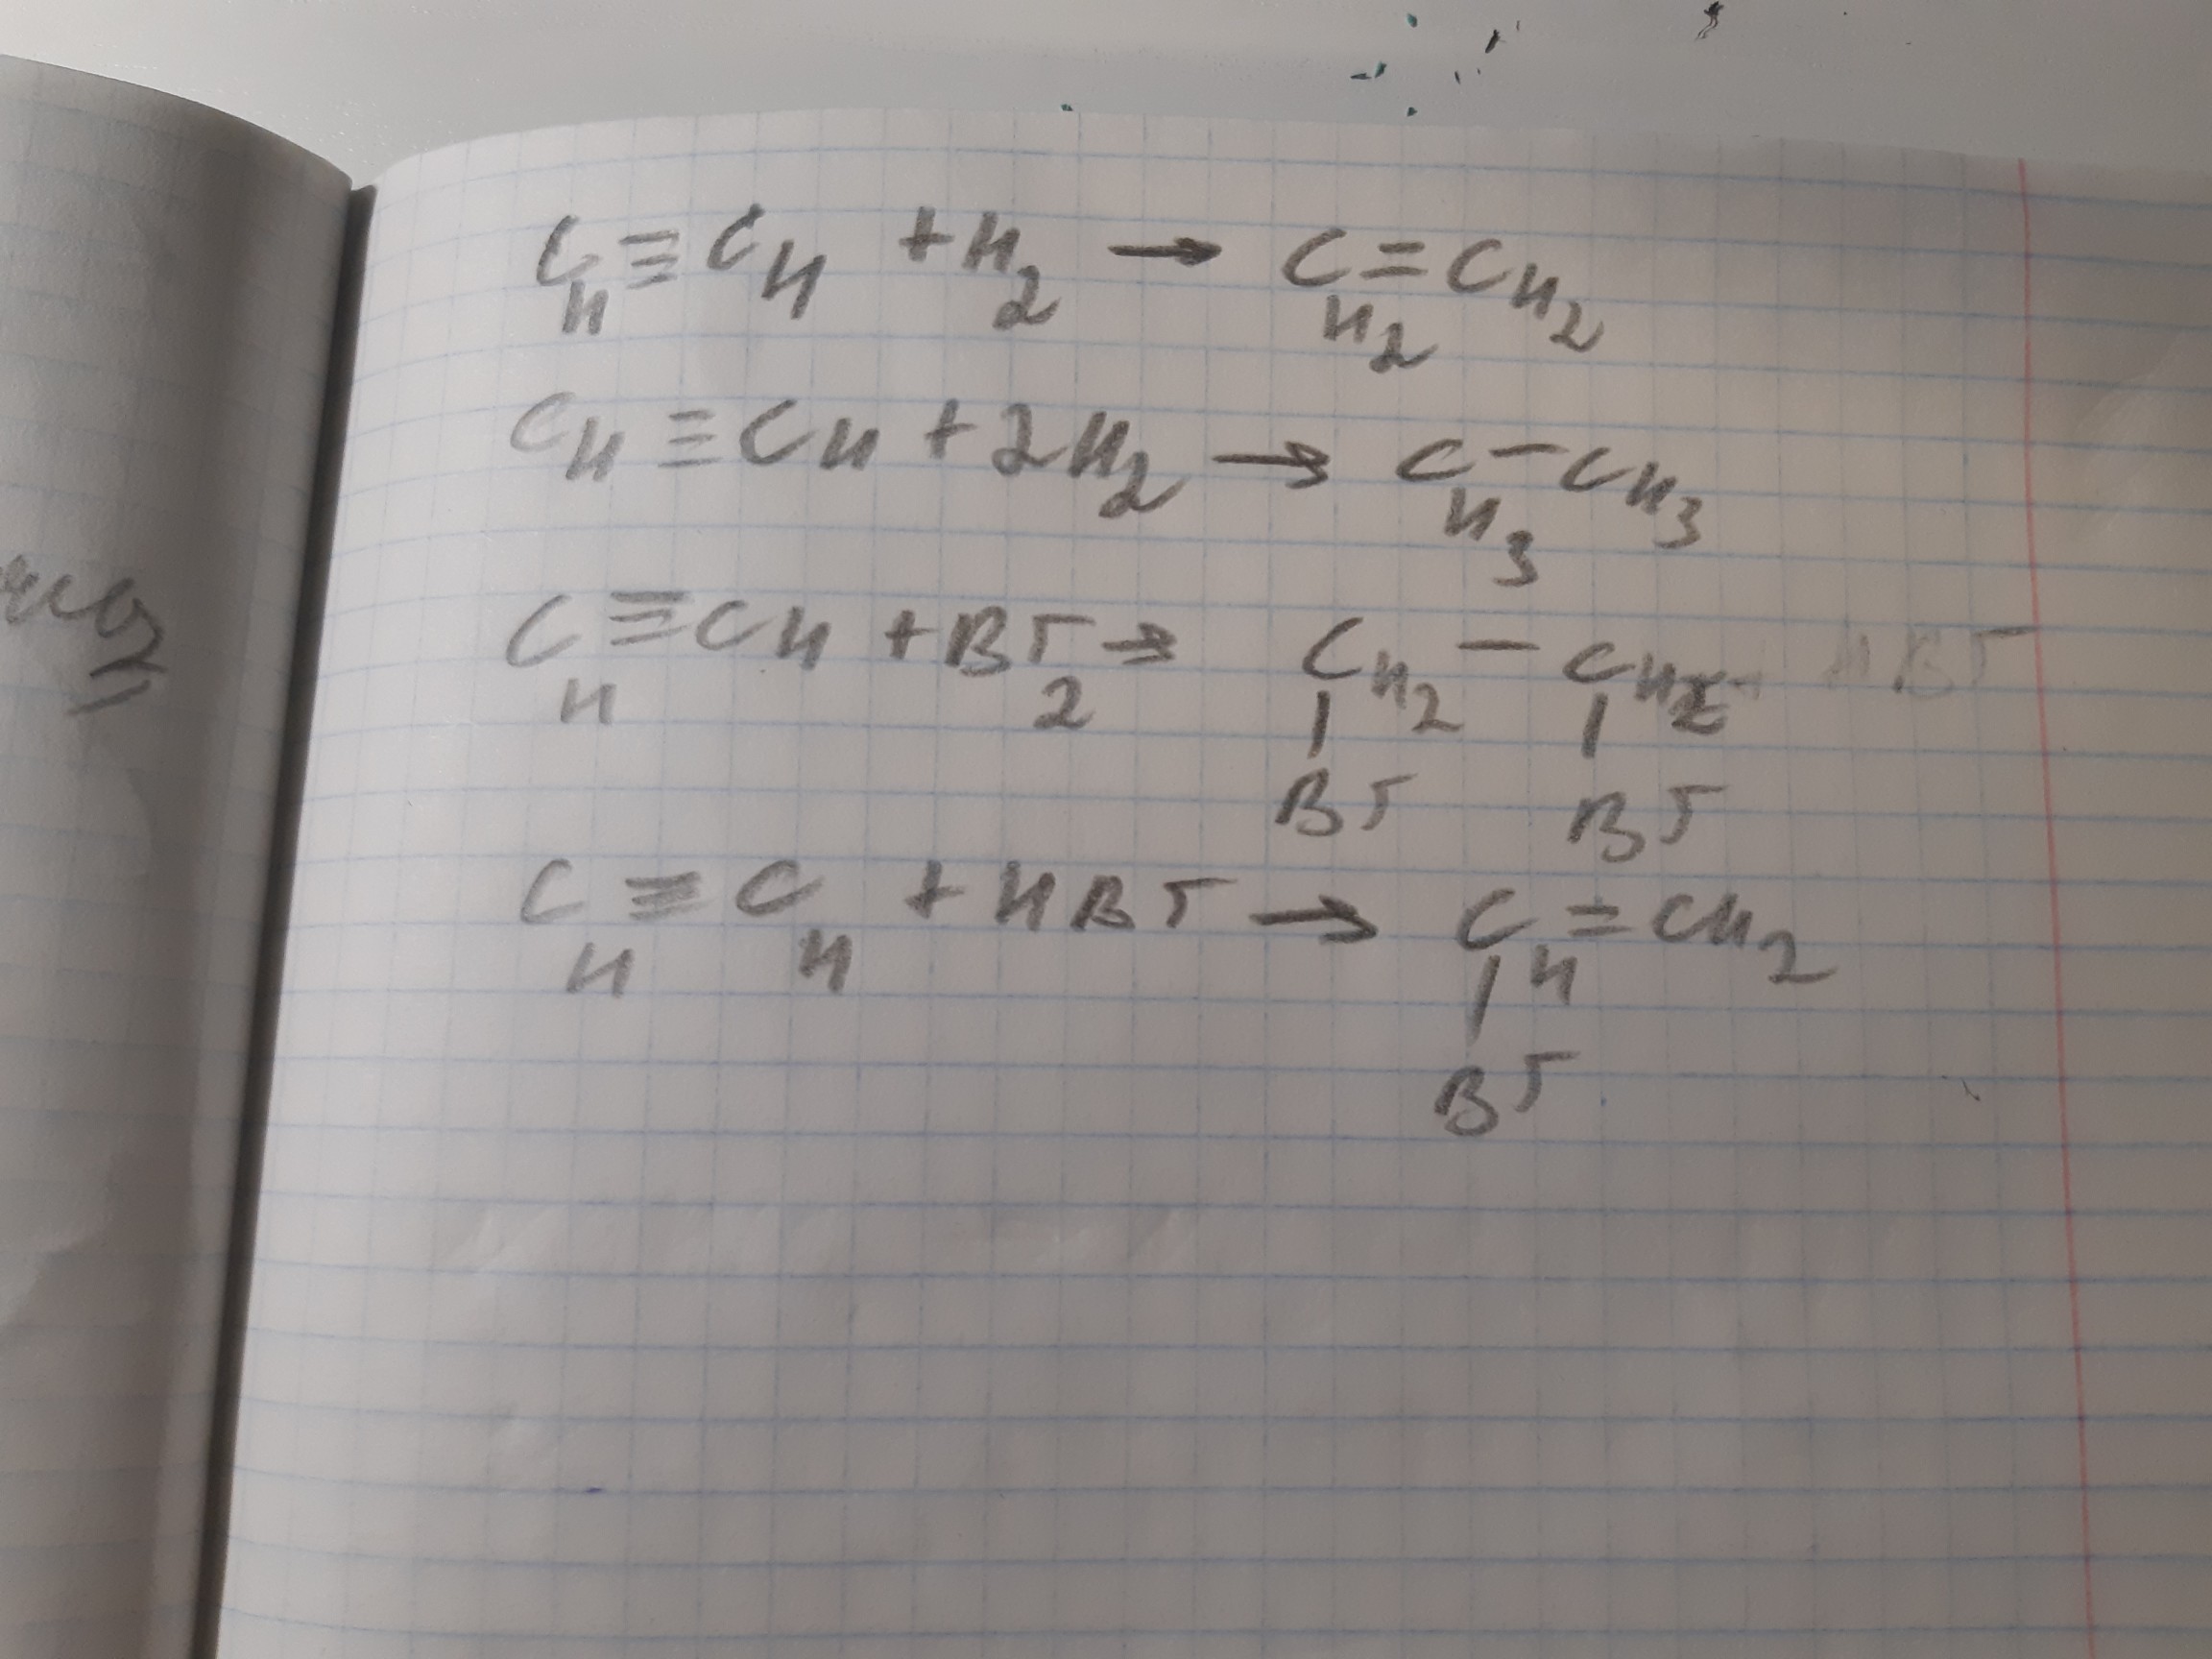 CH≡CH + H2 → CH2=CH2
CH≡CH + 2H2 → CH3-CH3
CH≡CH + Br2 → CH2-CH2 HBr
Br Br
CH≡CH + HBr → CH=CH2
Br